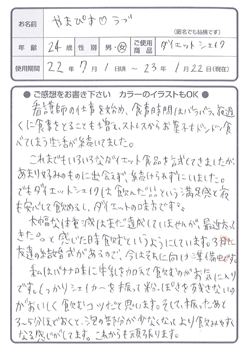 お名前 やまぴす♡ラブ
(匿名でも結構です)
年齢 24歳 性別 男・女 ご使用商品 ダイエットシェイク
使用期間 22年7月1日〜23年1月22日(現在)
●ご感想をお書き下さい カラーのイラストもOK●
看護師の仕事を始め、食事時間はバラバラ、夜遅
くに食事をとることも増え、ストレスからお菓子もドンドン食
べてしまう生活が続いていました。
これまでもいろいろなダイエット食品を試してきましたが
あまり好みのものに出会えず、続けられずにいました。
でもダイエットシェイクは"飲んだ"という満足感と
も安心して飲めるし、ダイエットの味方です。
大幅な体重減はまだ達成していませんが、最近太っ
てきた。。と感じた時飲むというようにしています。3月に
友達の結婚式があるので、今はそれに向け準備中です。
私はバナナ味に牛乳を加えて飲むのがお気に入り
です。しっかりシェイカーを振って粉っぽさをなくさないの
がおいしく飲むコツだと思います。そして、振ったあと
3〜5分ほどおくと、泡の部分が少なくなってより飲みやすく
なる感じがします。これからも頑張ります。